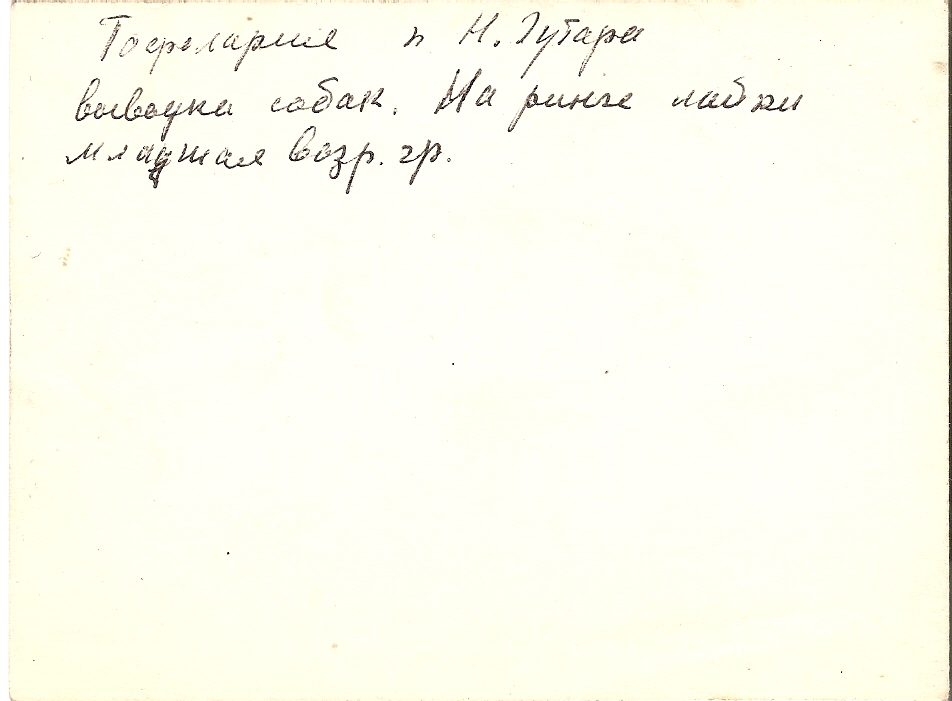 Тофалария п Н. Гутара
выводка собак. На ринге лайки
младшая возр. гр.